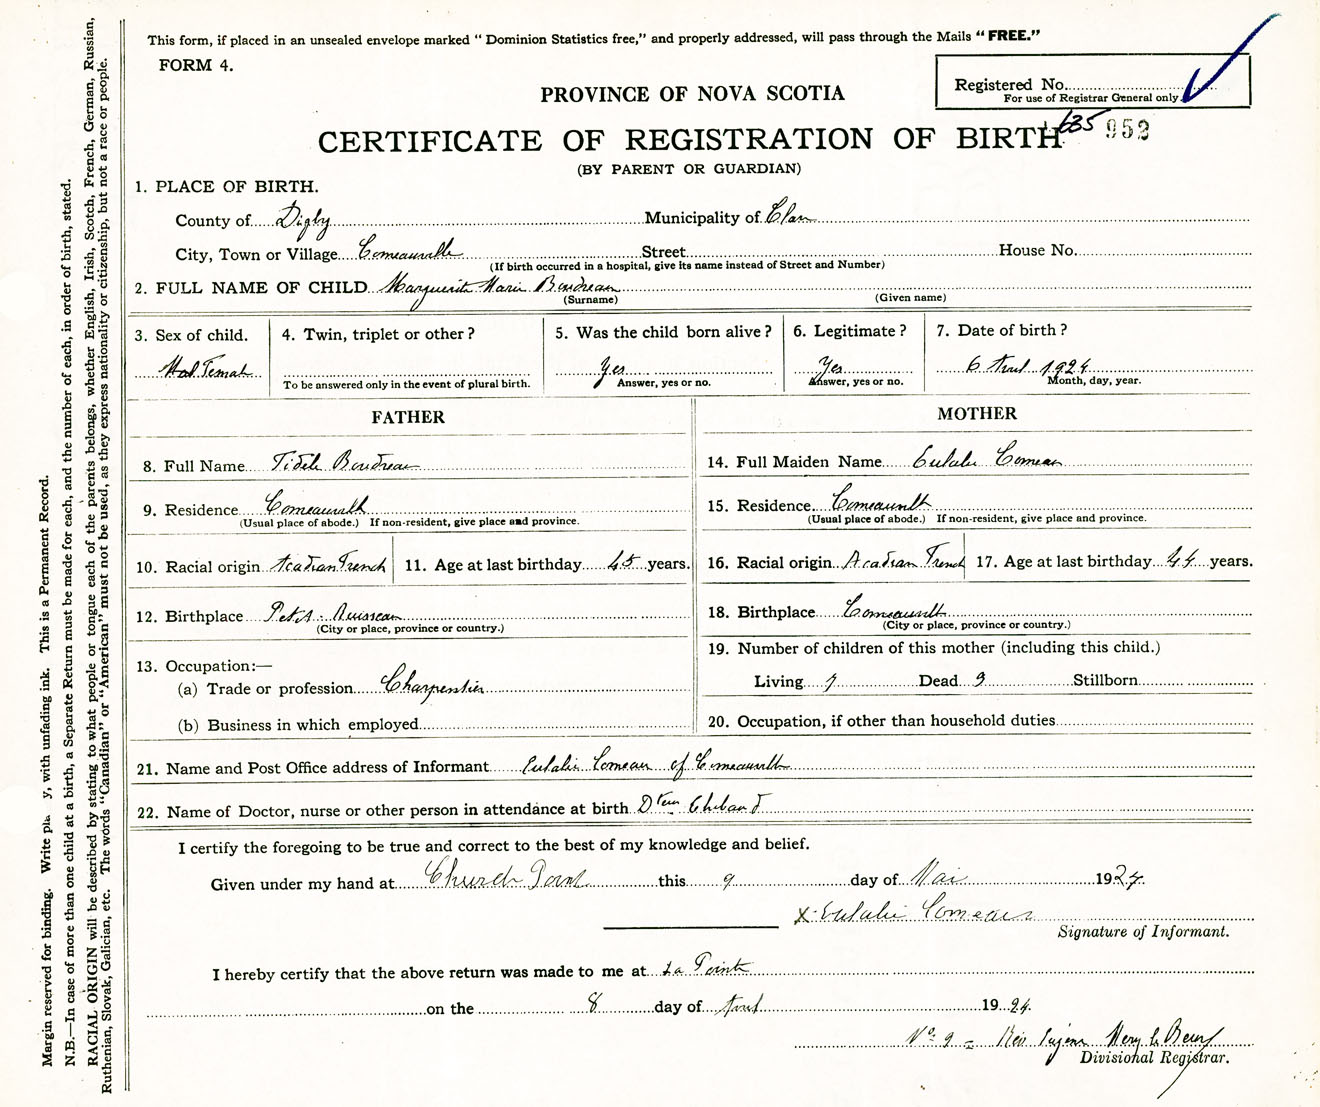 This form, if placed in an unsealed envelope marked "Dominion Statistics free," and properly addressed, will pass through the Mails "FREE."
FORM 4.
Registered No.
For use of Registrar General only.
PROVINCE OF NOVA SCOTIA
635 952
CERTIFICATE OF REGISTRATION OF BIRTH
(BY PARENT OR GUARDIAN)
1. PLACE OF BIRTH.
County of Digby Municipality of Clare
City, Town or Village Comeauville Street House No.
(If birth occurred in a hospital, give its name instead of Street and Number)
2. FULL NAME OF CHILD Marguerite Marie Boudreau
(Surname) (Given name)
3. Sex of child. 4. Twin, triplet or other? 5. Was the child born alive? 6. Legitimate? 7. Date of birth?
Female Yes Yes 6 1924
To be answered only in the event of plural birth. Answer, yes or no. Answer, yes or no. Month, day, year.
FATHER MOTHER
8. Full Name Fidèle Boudreau 14. Full Maiden Name Eulalie Comeau
9. Residence Comeauville 15. Residence Comeauville
(Usual place of abode.) If non-resident, give place and province. (Usual place of abode.) If non-resident, give place and province.
10. Racial origin Acadian French 11. Age at last birthday 45 years. 16. Racial origin Acadian French 17. Age at last birthday 44 years.
12. Birthplace Petit Ruisseau 18. Birthplace Comeauville
(City or place, province or country.) (City or place, province or country.)
13. Occupation:— 19. Number of children of this mother (including this child.)
(a) Trade or profession Charpentier Living 7 Dead 3 Stillborn
(b) Business in which employed 20. Occupation, if other than household duties
21. Name and Post Office address of Informant Eulalie Comeau of Comeauville
22. Name of Doctor, nurse or other person in attendance at birth
I certify the foregoing to be true and correct to the best of my knowledge and belief.
Given under my hand at Church Point this 9 day of Mai 1924.
x Eulalie Comeau
Signature of Informant.
I hereby certify that the above return was made to me at La Pointe
on the 8 day of 1924.
No. 9 = Rev Eugene
Divisional Registrar.
Margin reserved for binding. Write y, with unfading ink. This is a Permanent Record.
N.B.—In case of more than one child at a birth, a Separate Return must be made for each, and the number of each, in order of birth, stated.
RACIAL ORIGIN will be described by stating to what people or tongue each of the parents belongs, whether English, Irish, Scotch, French, German, Russian,
Ruthenian, Slovak, Galician, etc. The words "Canadian" or "American" must not be used, as they express nationality or citizenship, but not a race or people.